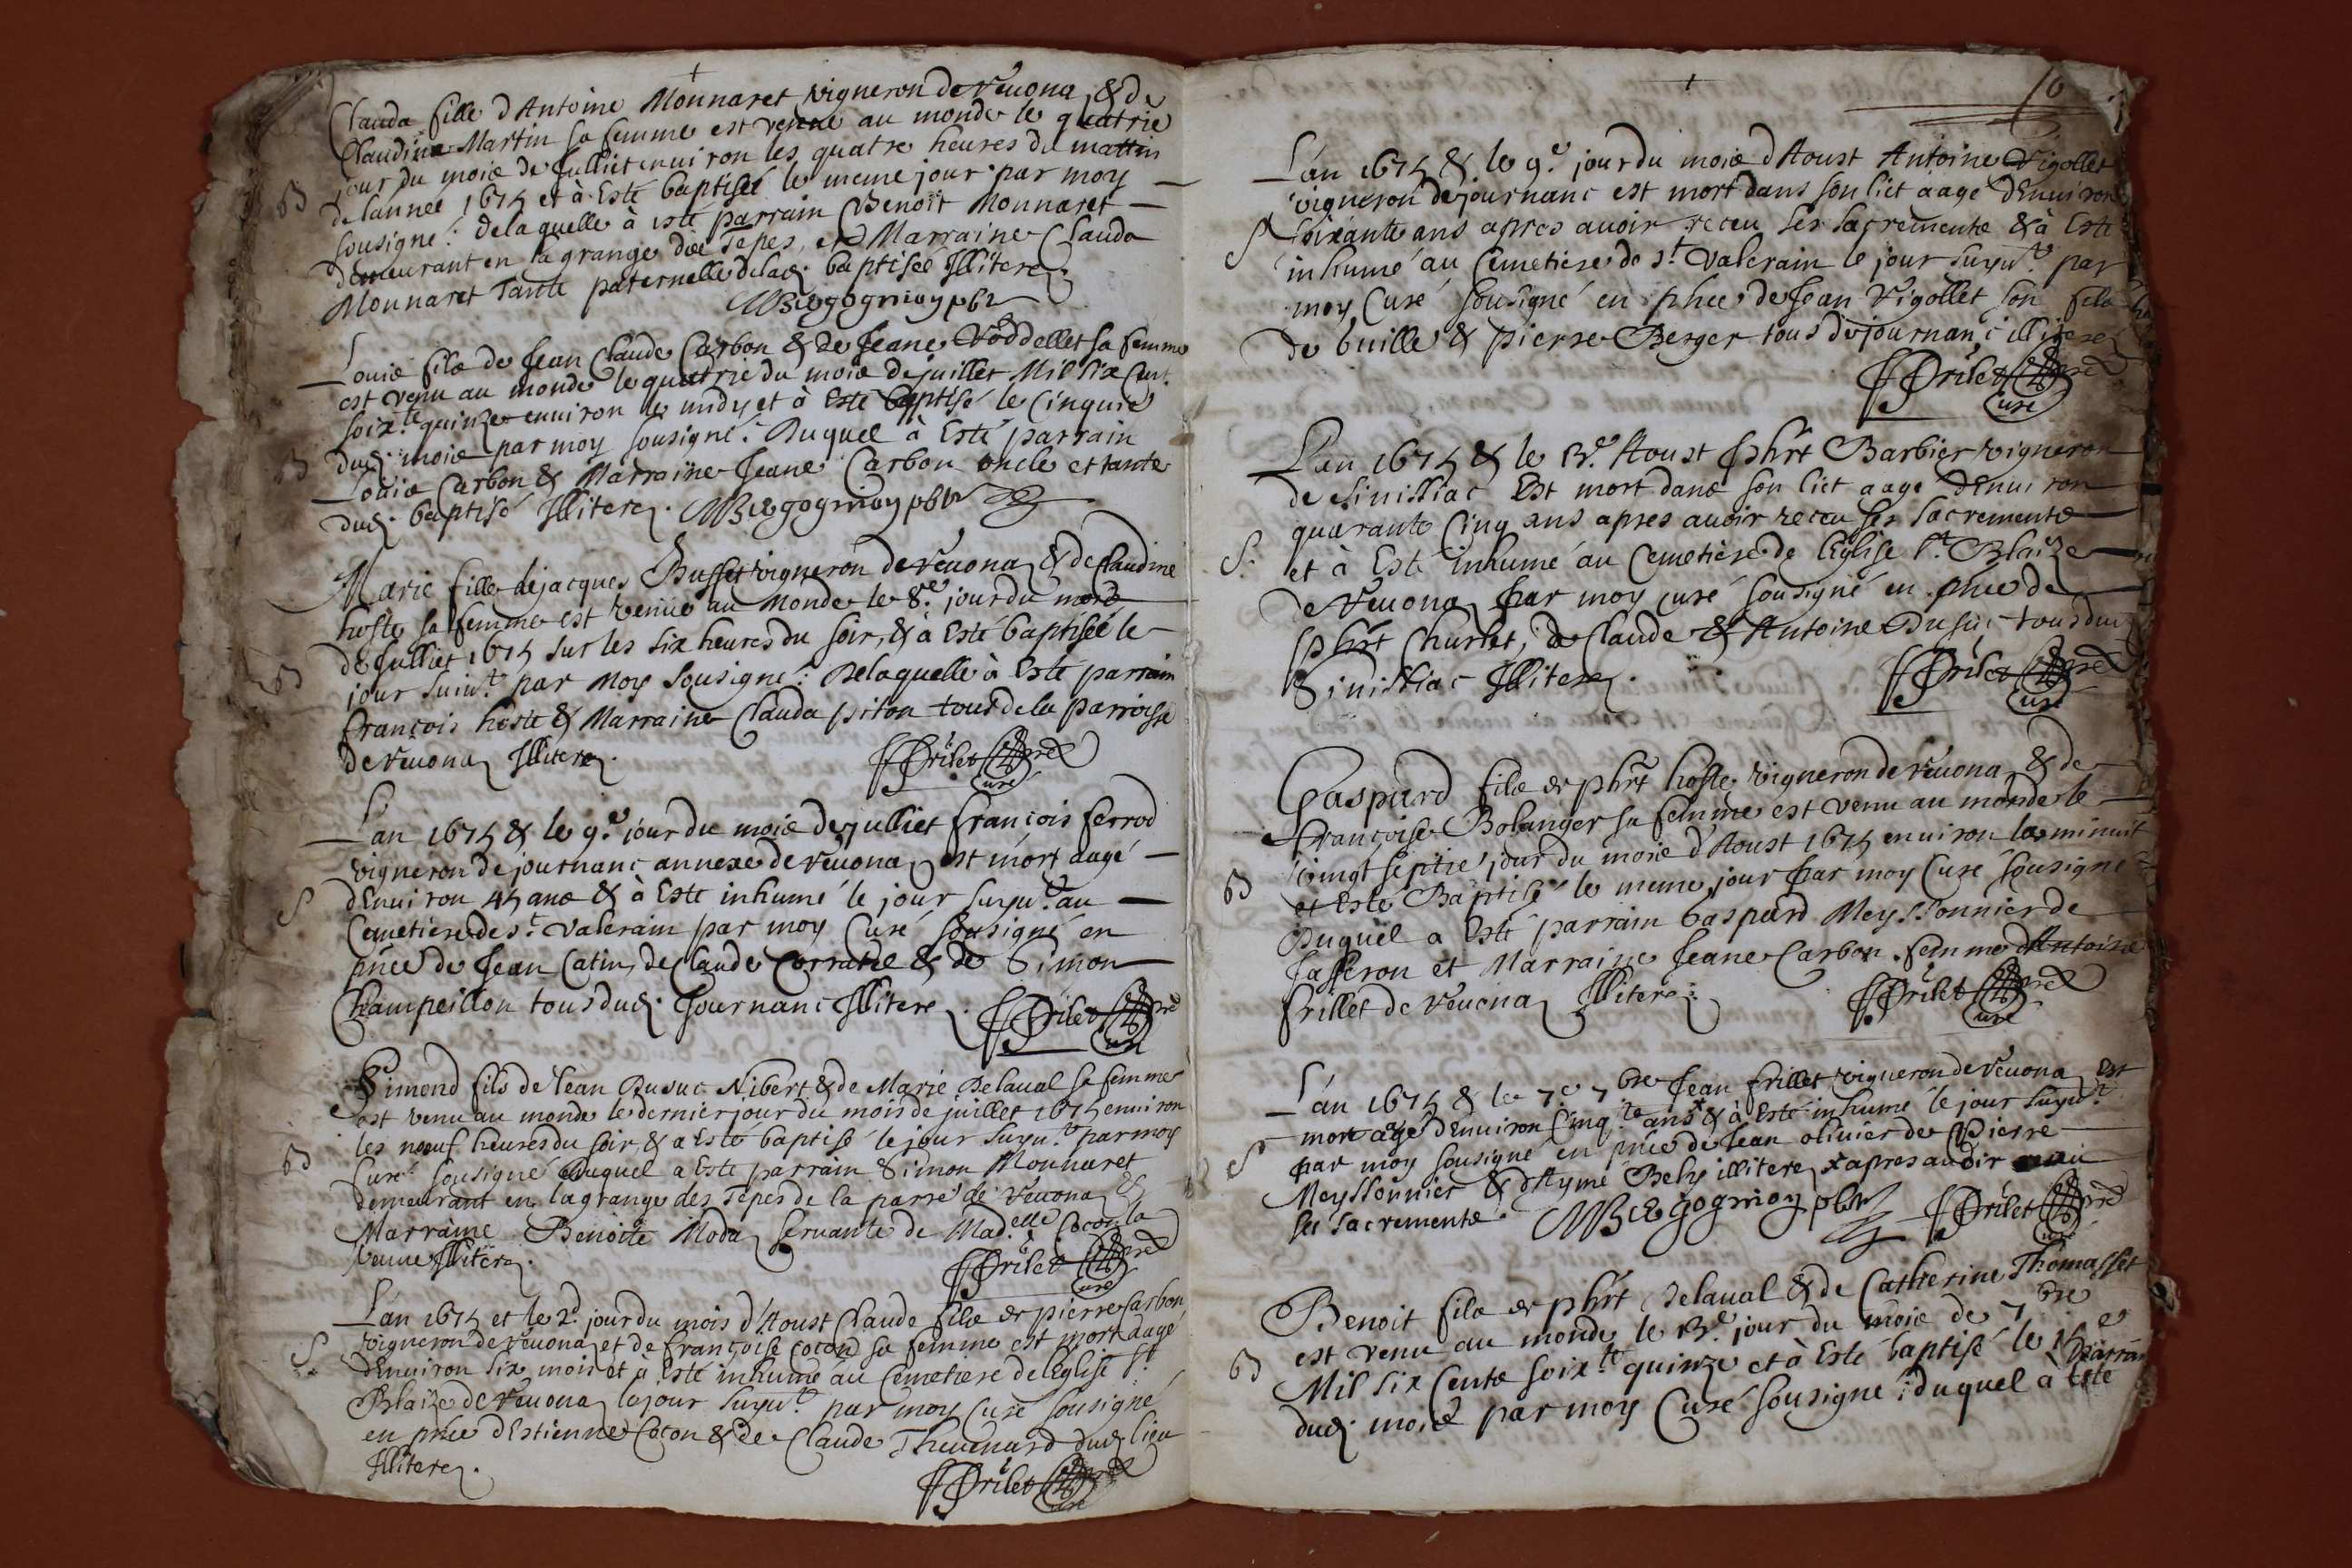 Clauda fille d'Antoine Monnaret vigneron de Reuona & de
Claudine Martin sa femme est venue au monde le quatrie
jour du mois de Julliet enuiron les quatre heures du mattin
B
de lannee 1675 et à Esté baptisée le meme jour par moy
sousigné: de laquelle à esté parrain Benoit Monnaret
demeurant en la grange des Tepes, et Marraine Clauda
Monnaret Tante paternelle de lad. baptisée Illitere
Louis fils de Jean Claude Carbon & de Jeane Voddellet sa femme
est venu au monde le quatrie du mois de juillet Mil six Cent
soix.te quinze enuiron les midy et à Esté baptisé le Cinquie
B
dud. mois par moy sousigné: Duquel à Esté parrain
Louis Carbon & Marraine Jeane Carbon oncle et tante
dud. baptisé Illitere. pbr
Marie fille de jacques Buffet vigneron de Reuona & de Claudine
hoste sa femme est venüe au Monde le 8.e jour du mois
B
de Julliet 1675 sur les six heures du soir, & à Esté baptisée le
jour suiu.t par Moy Sousigné: Delaquelle à Esté parrain
françois hoste & Marraine Clauda piton tous de la parroisse
de Reuona Illitere.
Curé
L'an 1675 & le 9.e jour du mois de julliet françois ferrod
vigneron de journanc annexe de Reuona est mort aagé
S
d'Enuiron 45 ans & à Esté inhumé le jour suyu.t au
Cemetiere de s.t Valerain par moy Curé sousigné en
pñce de Jean Catin, de Claude Corratte & de Simon
Champeillon tous dud. Journanc Illitere.
Curé
Simond fils de Jean Dusuc Nibert & de Marie Delaual sa femme
est venu au monde le dernier jour du mois de juillet 1675 enuiron
B
les neuf heures du soir, & a Esté baptisé le jour suyu.t par moy
Curé sousigné Duquel a Esté parrain Simon Monnaret
demeurant en la grange des Tepes de la parre de Reuona &
Marraine Benoite Moda seruante de Mad.elle Cocon la
veuue Illitere.
Curé
L'an 1675 et le 2.d jour du mois d'Aoust Claude fils de pierre Carbon
S.
vigneron de Reuona et de françoise Cocon sa femme est mort aagé
d'Enuiron six mois et à Esté inhumé au Cemetiere de l'Eglise S.t
Blaize de Reuona le jour suyu.t par moy Curé sousigné
en pñce d'Estienne Cocon & de Claude Theuenard dud. lieu
Illitere.
Curé
10
L'an 1675 & le 9.e jour du mois d'Aoust Antoine Vigollet
vigneron de journanc est mort dans son lict aagé d'Enuiron
S
soixante ans apres auoir receu ses sacrements & à Esté
inhumé au Cemetiere de s.t Valerain le jour suyu.t par
moy Curé sousigné en pñce de Jean Vigollet son fils
de buille & pierre Berger tous de journanc illitere
Curé
L'an 1675 & le 13.e Aoust Phrt Barbier vigneron
de Sinissiac Est mort dans son lict aagé d'Enuiron
quarante Cinq ans apres auoir receu ses sacrements
S.
et à Esté inhumé au Cemetiere de l'Eglise s.t Blaize
de Reuona par moy curé sousigné en pñce de
Phrt Churlet, de Claude & Antoine Dusuc tous dud
Sinissiac Illitere.
Curé
Gaspard fils de phrt hoste vigneron de Reuona & de
françoise Bolanger sa femme est venu au monde le
vingt septie jour du mois d'Aoust 1675 enuiron les minuit
B
et Esté Baptisé le meme jour par moy Curé sousigné
Duquel a Esté parrain Gaspard Meyssonnier de
Jasseron et Marraine Jeane Carbon femme d'Antoine
frillet de Reuona Illitere.
Curé
L'an 1675 & le 7.e 7bre Jean frillet vigneron de Reuona Est
mort agé d'Enuiron Cinq.te ans & à Esté inhumé le jour suyu.t
S
par moy sousigné en pñce de Jean oliuier de Pierre
Meyssonnier & d'Aymé Bely illitere x apres auoir receu
les sacrements. pbr
Curé
Benoit fils de phrt Delaual & de Catherine Thomasset
est venu au monde le 13.e jour du mois de 7bre
B
Mil six Cents soix.te quinze et à Esté baptisé le 15 e
dud. mois par moy Curé sousigné: duquel à Esté parrain